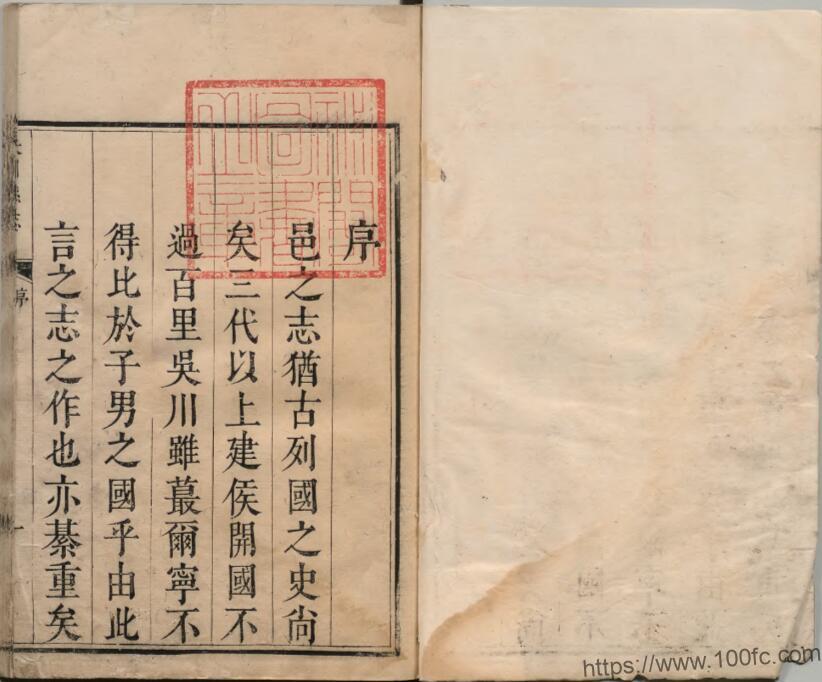 序
邑之志猶古列國之史尙
矣三代以上建侯開國不
過百里吳川雖蕞爾寧不
得比於子男之國乎由此
言之志之作也亦綦重矣
序
一
https://www.100fc.com